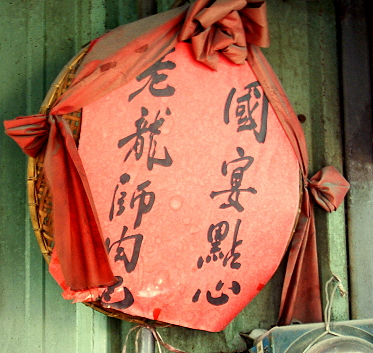 國宴點心
老龍師肉包